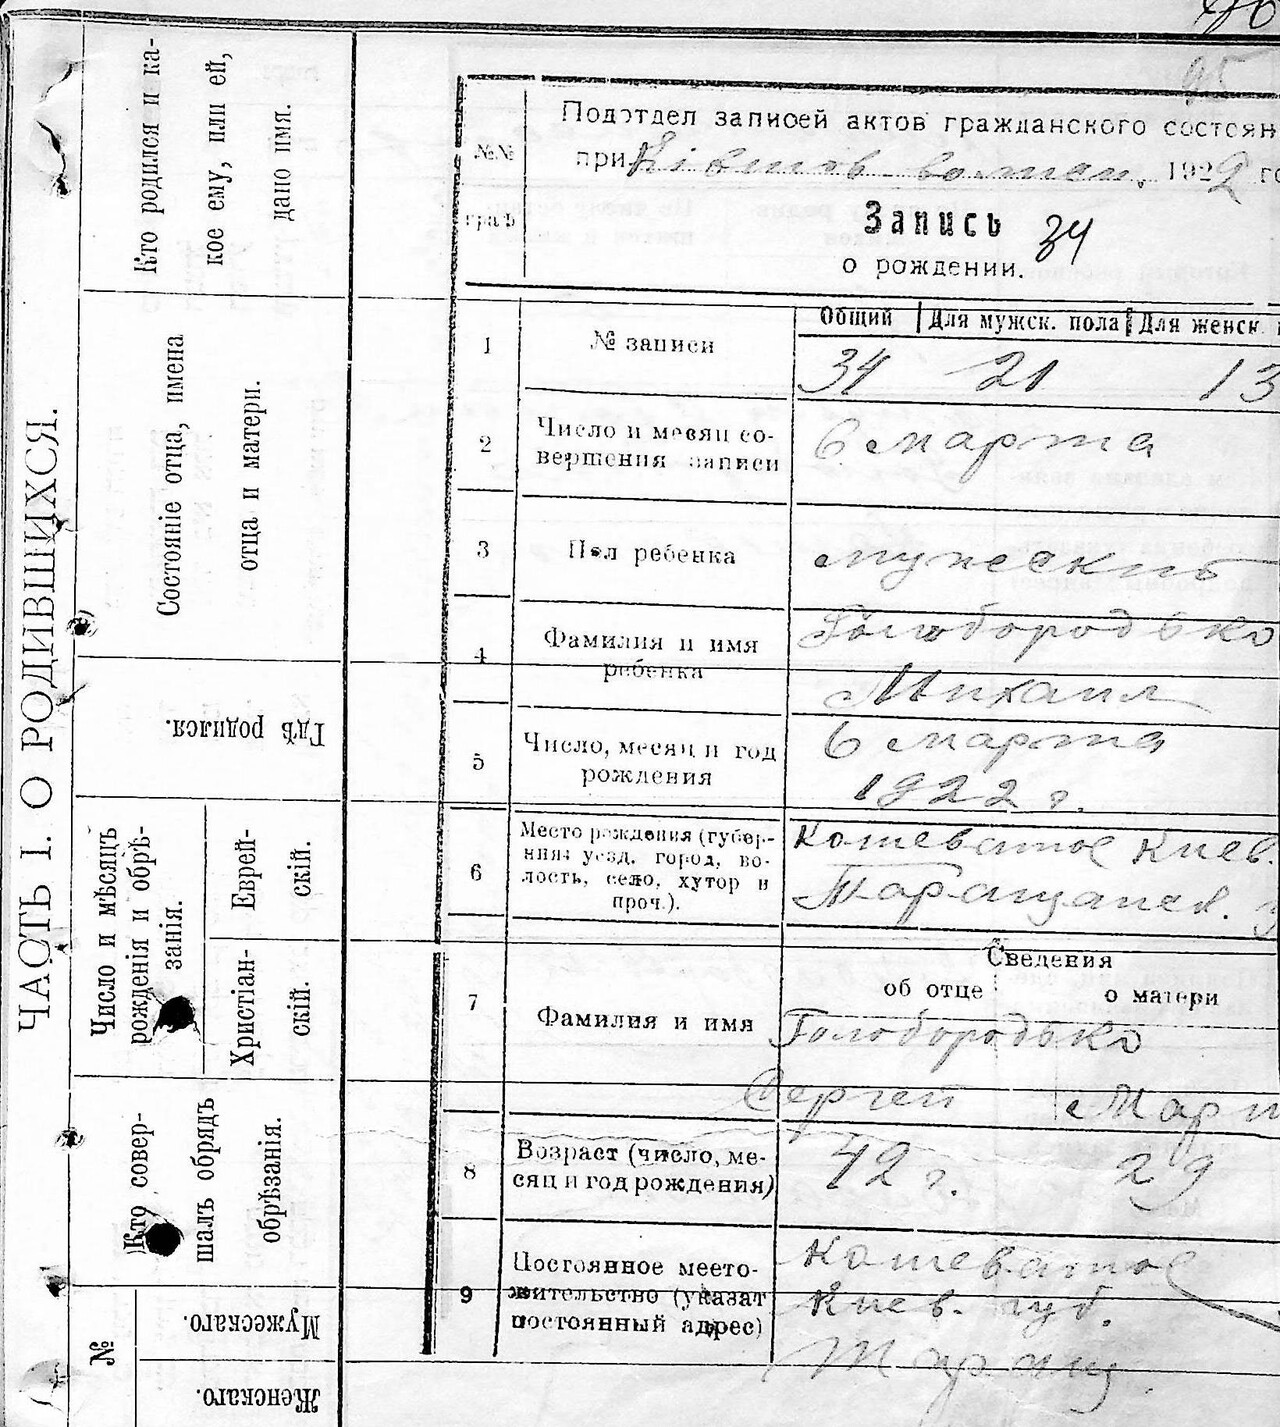 96
95
ЧАСТЬ I. О РОДИВШИХСЯ.
Кто родился и ка-
кое ему, или ей,
дано имя.
Состояніе отца, имена
отца и матери.
Гдѣ родился.
Число и мѣсяцъ
рожденія и обрѣ-
занія.
Еврей-
скій.
Христіан-
скій.
Кто совер-
шалъ обрядъ
обрѣзанія.
№
Мужескаго.
Женскаго.
№№
граф
Подотдел записей актов гражданского состоян
при волости, 1922 го
Запись 34
о рождении.
1
№ записи
Общий Для мужск. пола Для женск.
34 21 13
2
Число и месяц со-
вершения записи
6 марта
3
Пол ребенка
мужеский
4
Фамилия и имя
ребенка
Голобородько
Михаил
5
Число, месяц и год
рождения
6 марта
1922 г.
6
Место рождения (губер-
ния, уезд, город, во-
лость, село, хутор и
проч.).
Кошеватое Киев.
Таращанск. у
Сведения
об отце о матери
7
Фамилия и имя
Голобородько
Сергей Мари
8
Возраст (число, ме-
сяц и год рождения)
42 г. 29
9
Постоянное место-
жительство (указат
постоянный адрес)
Кошеватое
Киев. губ.
Таращ